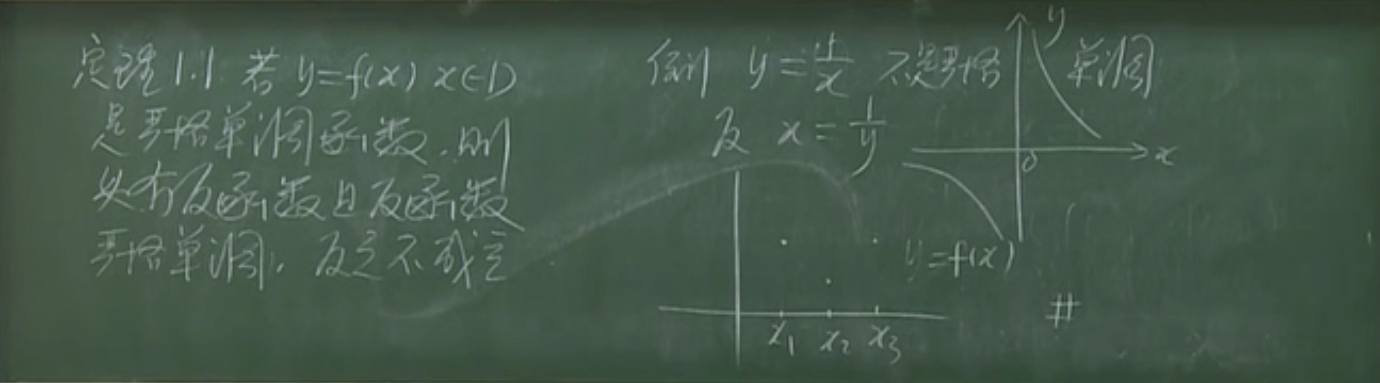 定理1.1 若 y=f(x) x∈D
是严格单调函数,则
必有反函数且反函数
严格单调,反之不成立
例 y=1/x 不是严格单调
反 x=1/y
y
x
0
y=f(x)
x₁ x₂ x₃
#